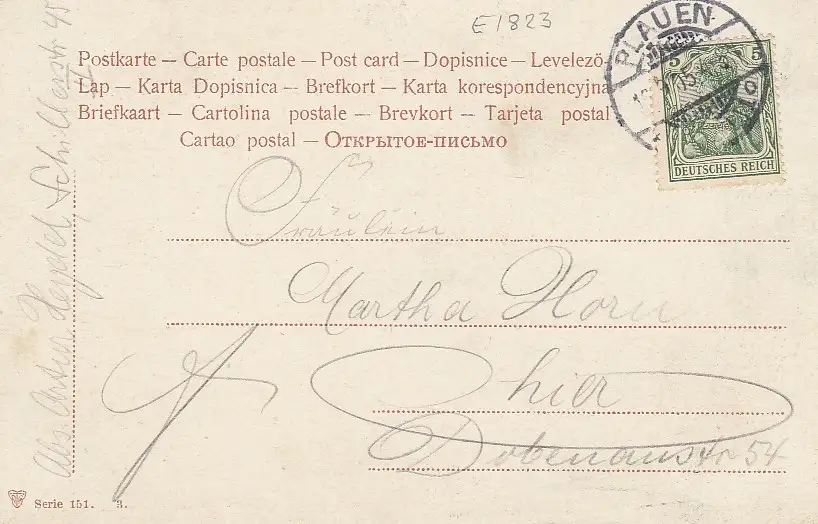 E1823
Postkarte — Carte postale — Post card — Dopisnice — Levelező-
Lap — Karta Dopisnica — Brefkort — Karta korespondencyjna
Briefkaart — Cartolina postale — Brevkort — Tarjeta postal
Cartao postal — Открытое-письмо
PLAUEN
5 5
DEUTSCHES REICH
Fräulein
Martha Horn
hier
Dobenaustr 54
Abs. Artur Schillerstr 45
Serie 151. 3.